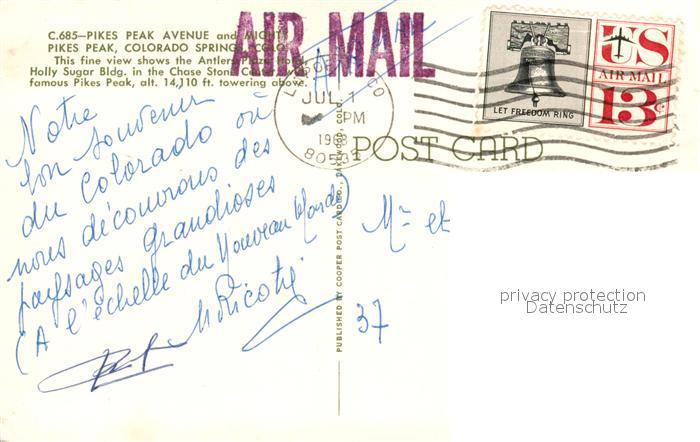 C.685—PIKES PEAK AVENUE and MIGHTY
PIKES PEAK, COLORADO SPRINGS, COLO.
This fine view shows the Antlers Plaza Hotel,
Holly Sugar Bldg. in the Chase Stone Center with
famous Pikes Peak, alt. 14,110 ft. towering above.
AIR MAIL
JUL 1
PM
1968
LET FREEDOM RING
US
AIR MAIL
13c
POST CARD
Notre
bon souvenir
du Colorado où
nous découvrons des
paysages grandioses
(A l'échelle du Nouveau Monde)
PUBLISHED BY COOPER POST CARD CO., LAKEWOOD, COLO.
Mr et
37
privacy protection
Datenschutz